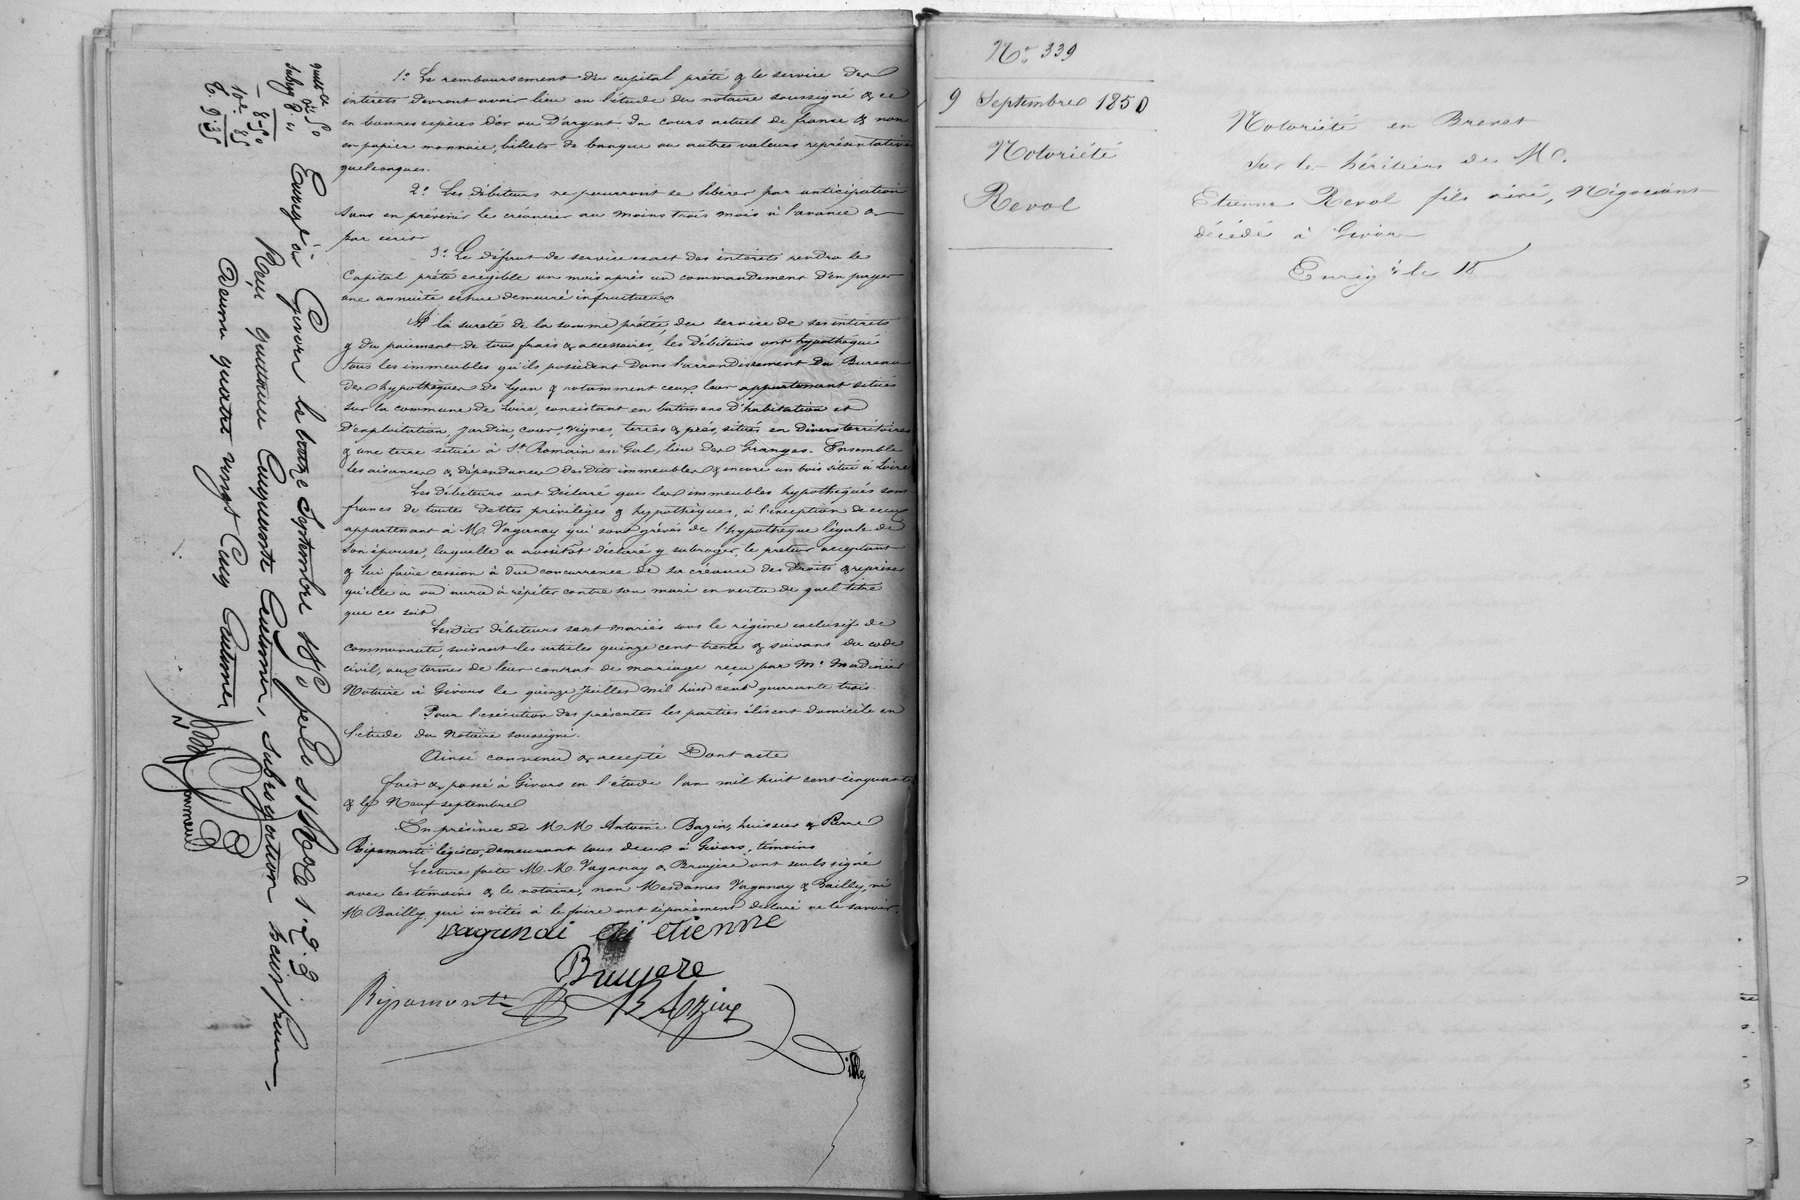 1º Le remboursement du capital prêté & le service des
intérêts devront avoir lieu en l'étude du notaire soussigné & ce
en bonnes espèces d'or ou d'argent du cours actuel de france & non
en papier monnaie, billets de banque ou autres valeurs représentatives
quelconques.
2º Les débiteurs ne pourront se libérer par anticipation
sans en prévenir le créancier au moins trois mois à l'avance &
par écrit
3º Le défaut de service exact des intérêts rendra le
Capital prêté exigible un mois après un commandement d'en payer
une annuité échue demeuré infructueux
A la sureté de la somme prêtée, du service de ses intérêts
& du paiement de tous frais & accessoires, les débiteurs ont hypothéqué
tous les immeubles qu'ils possèdent dans l'arrondissement du Bureau
des hypothèques de Lyon & notamment ceux leur appartenant situés
sur la commune de Loire, consistant en batimens d'habitation et
d'exploitation, jardin, cour, vignes, terres & prés, situés en divers territoires
& une terre située à St Romain en Gal, lieu des Granges. Ensemble
les aisances & dépendances des dits immeubles & encore un bois situé à Loire
Les débiteurs ont déclaré que les immeubles hypothéqués sont
francs de toutes dettes privilèges & hypothèques, à l'exception de ceux
appartenant à M. Vaganay qui sont grévés de l'hypothèque légale de
son épouse, laquelle a aussitôt déclaré y subroger, le prêteur acceptant
& lui faire cession à due concurrence de sa créance des droits & reprises
qu'elle a ou aura à répéter contre son mari en vertu de quel titre
que ce soit
Lesdits débiteurs sont mariés sous le régime exclusif de
communauté, suivant les articles quinze cent trente & suivans du code
civil, aux termes de leur contrat de mariage reçu par Me Madinier
Notaire à Givors le quinze juillet mil huit cent quarante trois
Pour l'exécution des présentes les parties élisent domicile en
l'étude du Notaire soussigné.
Ainsi convenu & accepté Dont acte
fait & passé à Givors en l'étude l'an mil huit cent cinquante
& le Neuf septembre
En présence de M M Antoine Bazin, huissier & Pierre
Ripamonti légiste, demeurant tous deux à Givors, témoins
Lecture faite M. M Vaganay & Bruyère ont seuls signé
avec les témoins & le notaire, non Mesdames Vaganay & Bailly, ni
M. Bailly qui invités à le faire ont séparément déclaré ne le savoir.
vaganai etienne
Bruyere
Ripamonti
Enregé à Givors le douze Septembre 1850 folio
Reçu quatorze Cinquante Centimes, subrogation deux francs,
Décime quatre vingt Cinq Centimes
No 339
9 Septembre 1850
Notoriété
Revol
Notoriété en Brevet
sur les héritiers de Mr.
Etienne Revol fils aîné, Négociant
décédé à Givors
Enregé le 18